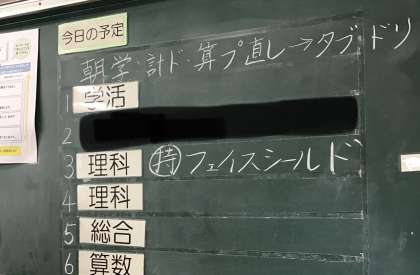 今日の予定
朝学・計ド・算プ直し→タブドリ
1 学活
2
3 理科 ㊕フェイスシールド
4 理科
5 総合
6 算数